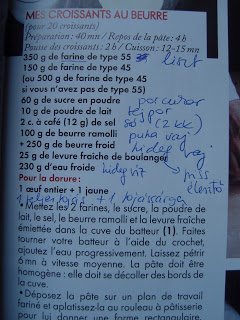 MES CROISSANTS AU BEURRE
(pour 20 croissants)
Préparation : 40 mn / Repos de la pâte : 4 h
Pousse des croissants : 2 h / Cuisson : 12-15 mn
350 g de farine de type 55 liszt
150 g de farine de type 45
(ou 500 g de farine de type 45
si vous n'avez pas de type 55)
60 g de sucre en poudre porcukor
10 g de poudre de lait tejpor
2 c. à café (12 g) de sel só (2 kk)
100 g de beurre ramolli puha vaj
+ 250 g de beurre froid hideg vaj
25 g de levure fraîche de boulanger
230 g d'eau froide hideg víz friss élesztő
Pour la dorure :
1 œuf entier + 1 jaune
1 teljes tojás + 1 tojássárgája
• Mettez les 2 farines, le sucre, la poudre de
lait, le sel, le beurre ramolli et la levure fraîche
émiettée dans la cuve du batteur (1). Faites
tourner votre batteur à l'aide du crochet,
ajoutez l'eau progressivement. Laissez pétrir
6 mn à vitesse moyenne. La pâte doit être
homogène : elle doit se décoller des bords de
la cuve.
• Déposez la pâte sur un plan de travail
fariné et aplatissez-la au rouleau à pâtisserie
pour lui donner une forme rectangulaire.